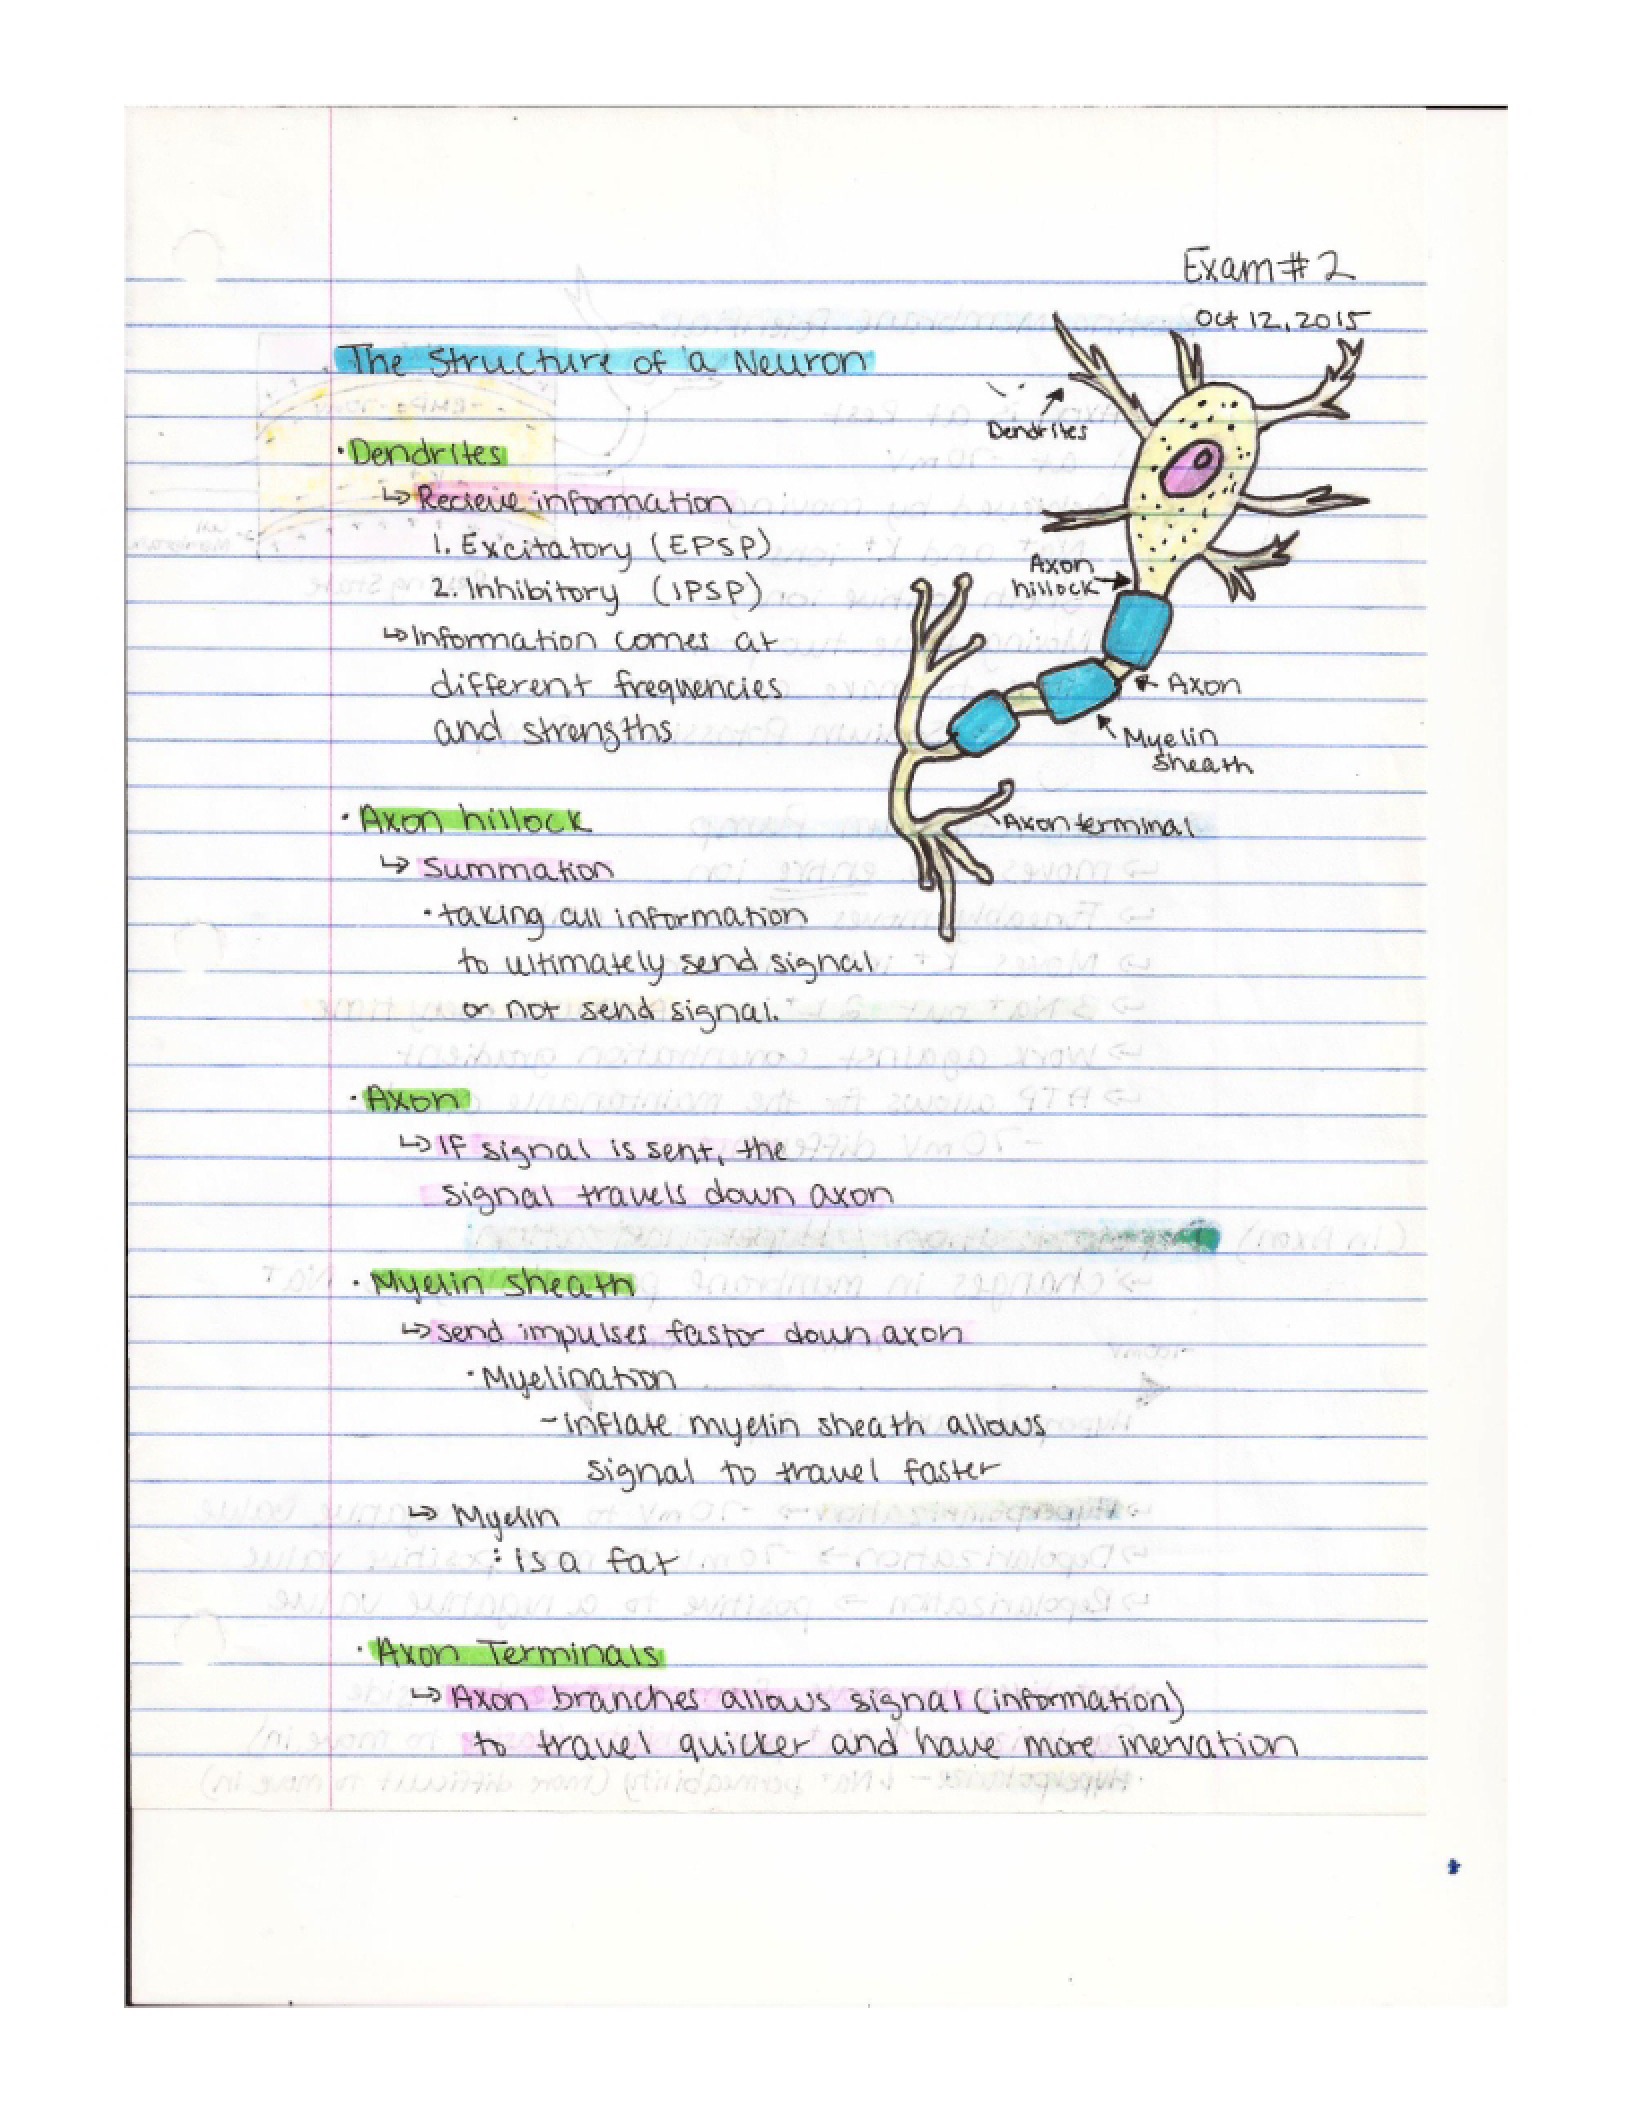 Exam #2
Oct 12, 2015
The Structure of a Neuron
Dendrites
· Dendrites
↳ Recieve information
1. Excitatory (EPSP)
2. Inhibitory (IPSP)
↳ Information comes at
different frequencies
and strengths
Axon
hillock
Axon
Myelin
sheath
Axon terminal
· Axon hillock
↳ Summation
· taking all information
to ultimately send signal
or not send signal.
· Axon
↳ If signal is sent, the
signal travels down axon
· Myelin sheath
↳ send impulses fastor down axon
· Myelination
- inflate myelin sheath allows
signal to travel faster
↳ Myelin
: is a fat
· Axon Terminals
↳ Axon branches allows signal (information)
to travel quicker and have more inervation